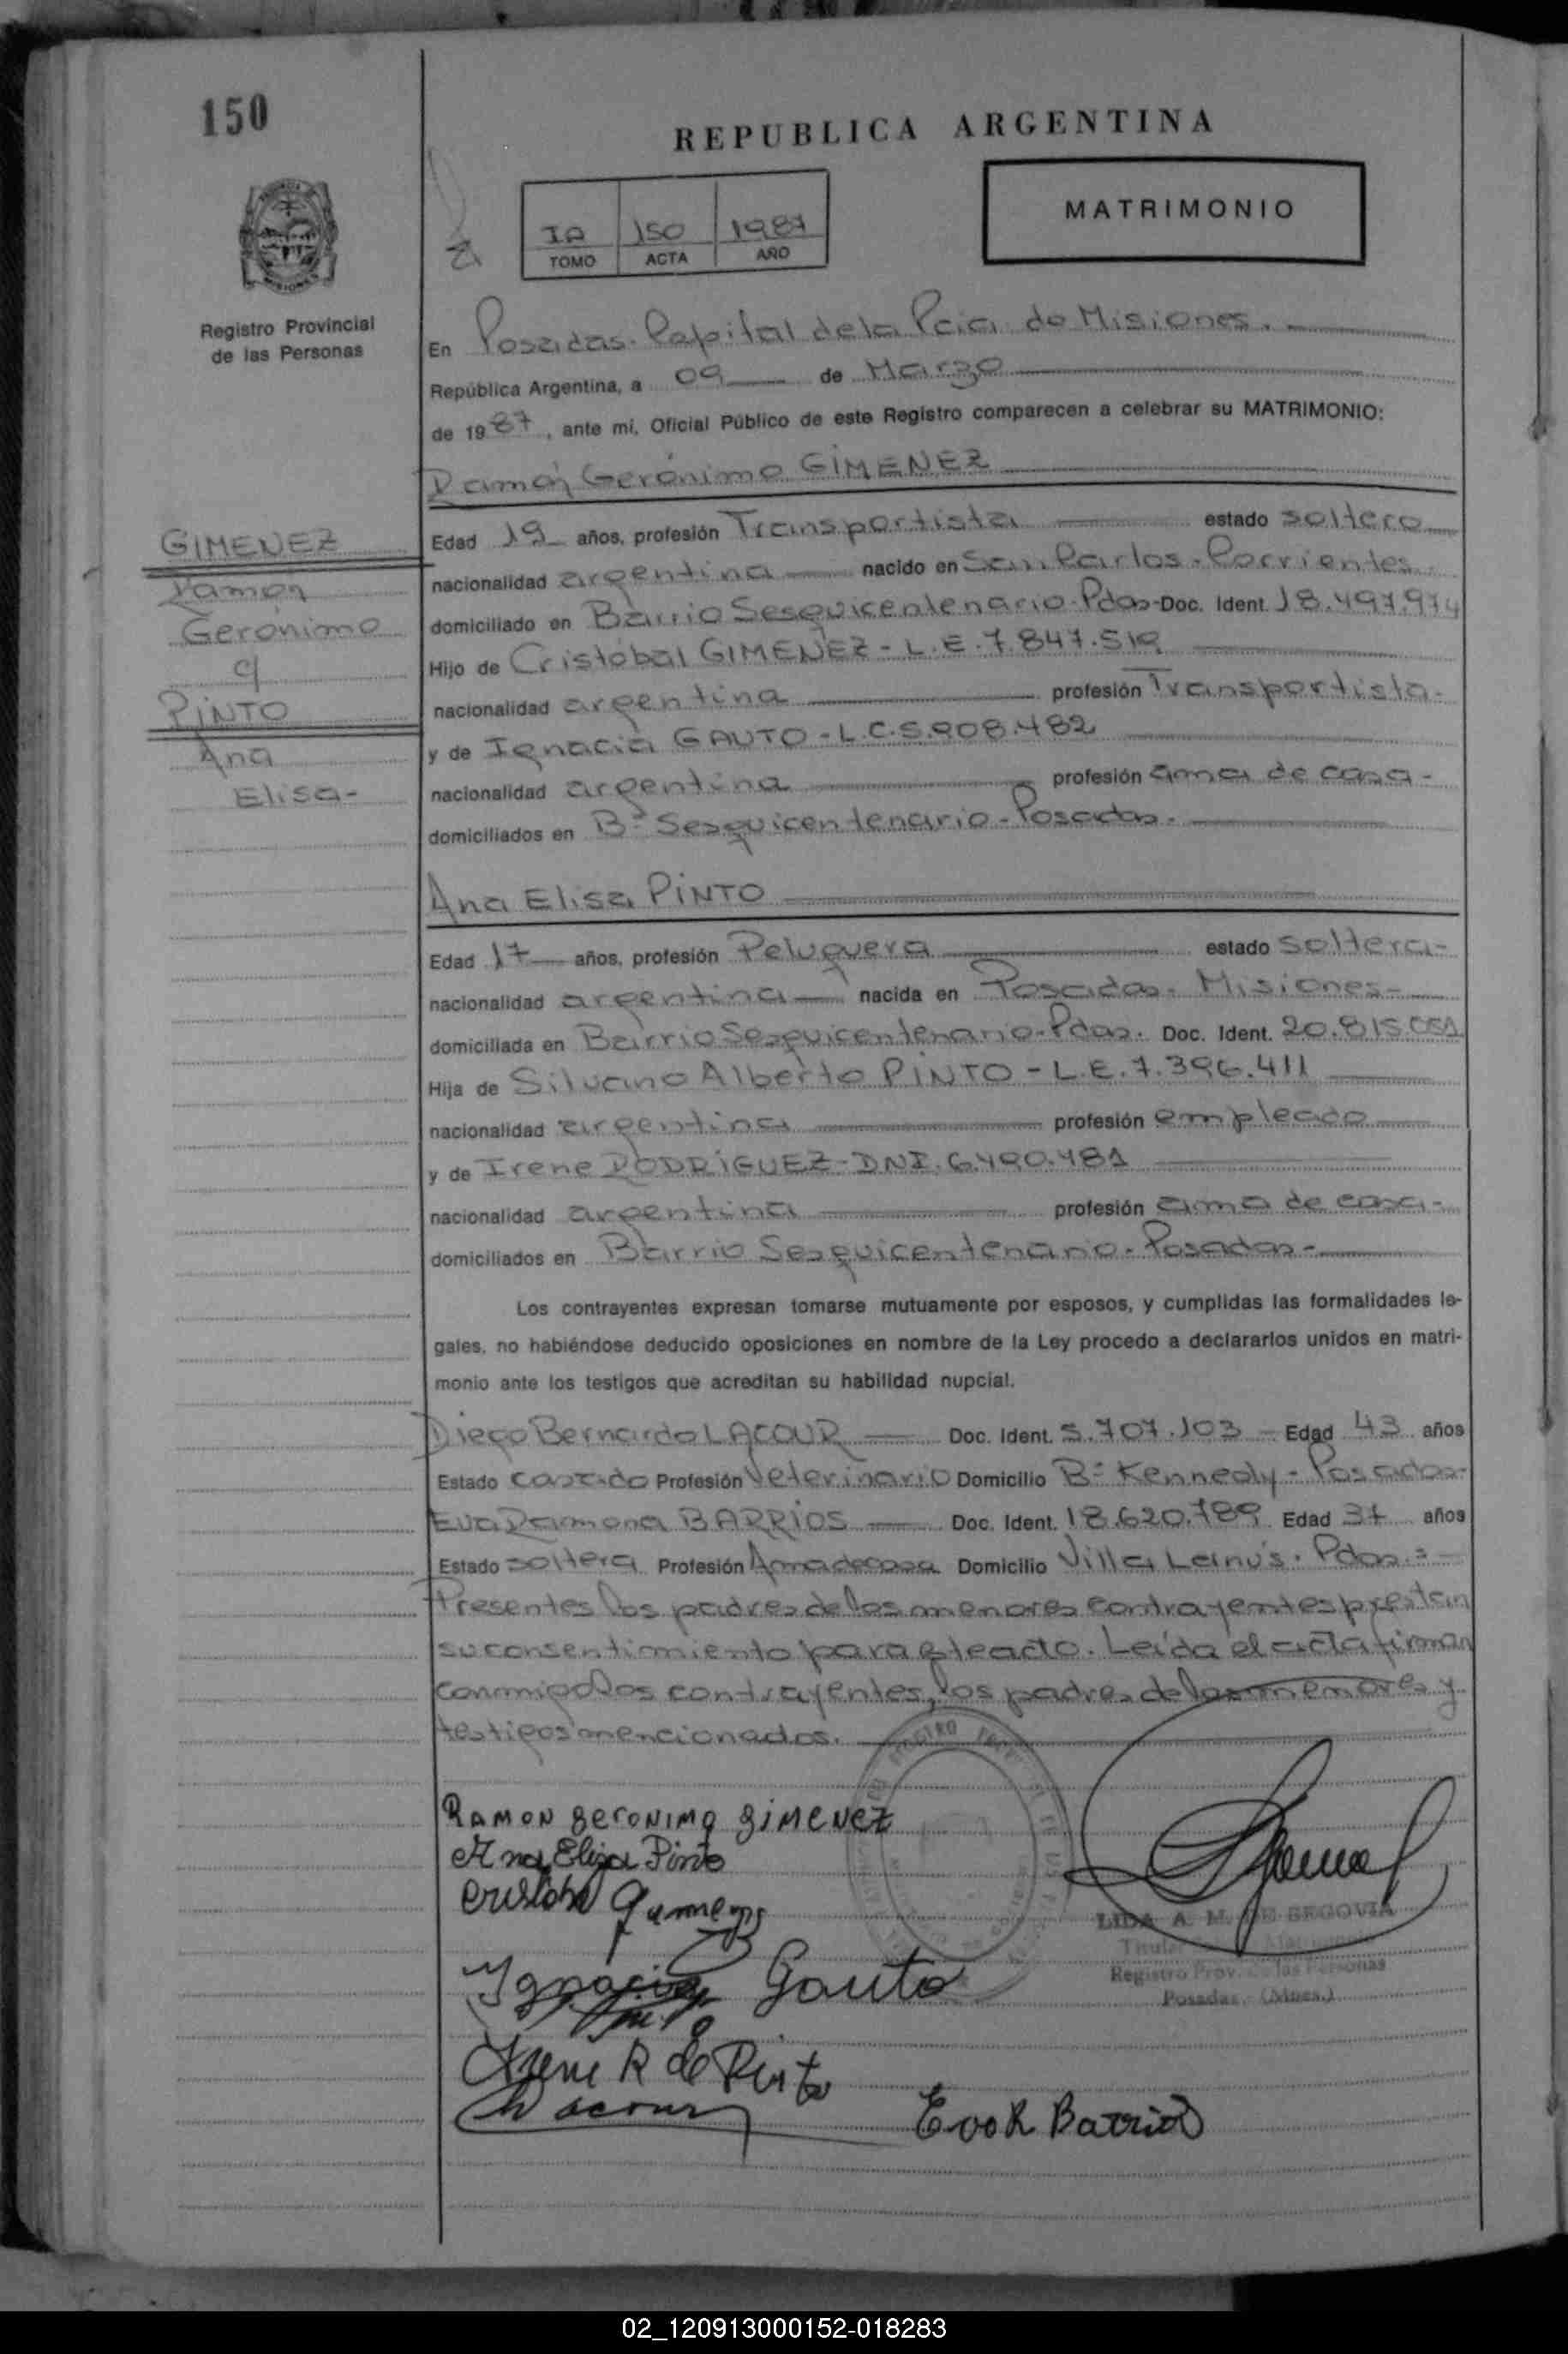 150
REPUBLICA ARGENTINA
MATRIMONIO
IA 150 1987
TOMO ACTA AÑO
Registro Provincial
de las Personas
En Posadas. Capital de la Pcia. de Misiones.
República Argentina, a 09 de Marzo
de 1987, ante mí, Oficial Público de este Registro comparecen a celebrar su MATRIMONIO:
Ramón Gerónimo GIMENEZ
GIMENEZ
Ramón
Gerónimo
c/
PINTO
Ana
Elisa-
Edad 19 años, profesión Transportista estado soltero
nacionalidad argentina nacido en San Carlos - Corrientes
domiciliado en Barrio Sesquicentenario-Pdas-Doc. Ident. 18.497.974
Hijo de Cristóbal GIMENEZ - L.E. 7.847.519
nacionalidad argentina profesión Transportista-
y de Ignacia GAUTO - L.C. 5.908.482
nacionalidad argentina profesión ama de casa-
domiciliados en Bº Sesquicentenario - Posadas.
Ana Elisa PINTO
Edad 17 años, profesión Peluquera estado soltera-
nacionalidad argentina nacida en Posadas - Misiones-
domiciliada en Barrio Sesquicentenario-Pdas. Doc. Ident. 20.815.051
Hija de Silvano Alberto PINTO - L.E. 7.396.411
nacionalidad argentina profesión empleado
y de Irene RODRIGUEZ - DNI. 6.490.481
nacionalidad argentina profesión ama de casa-
domiciliados en Barrio Sesquicentenario - Posadas-
Los contrayentes expresan tomarse mutuamente por esposos, y cumplidas las formalidades le-
gales, no habiéndose deducido oposiciones en nombre de la Ley procedo a declararlos unidos en matri-
monio ante los testigos que acreditan su habilidad nupcial.
Diego Bernardo LACOUR Doc. Ident. 5.707.103 - Edad 43 años
Estado casado Profesión Veterinario Domicilio Bº Kennedy - Posadas-
Eva Ramona BARRIOS Doc. Ident. 18.620.789 Edad 37 años
Estado soltera Profesión Ama de casa Domicilio Villa Lanús. Pdas.-
Presentes los padres de los menores contrayentes prestan
su consentimiento para este acto. Leída el acta firman
conmigo los contrayentes, los padres de los menores y
testigos mencionados.
RAMON GERONIMO GIMENEZ
Ana Elisa Pinto
Cristobal Gimenez
LIDA A. M. DE SEGOVIA
Titular
Ignacia Gauto
Registro Prov. de las Personas
Posadas - (Mnes.)
Irene R de Pinto
Lacour
Eva R Barrios
02_120913000152-018283